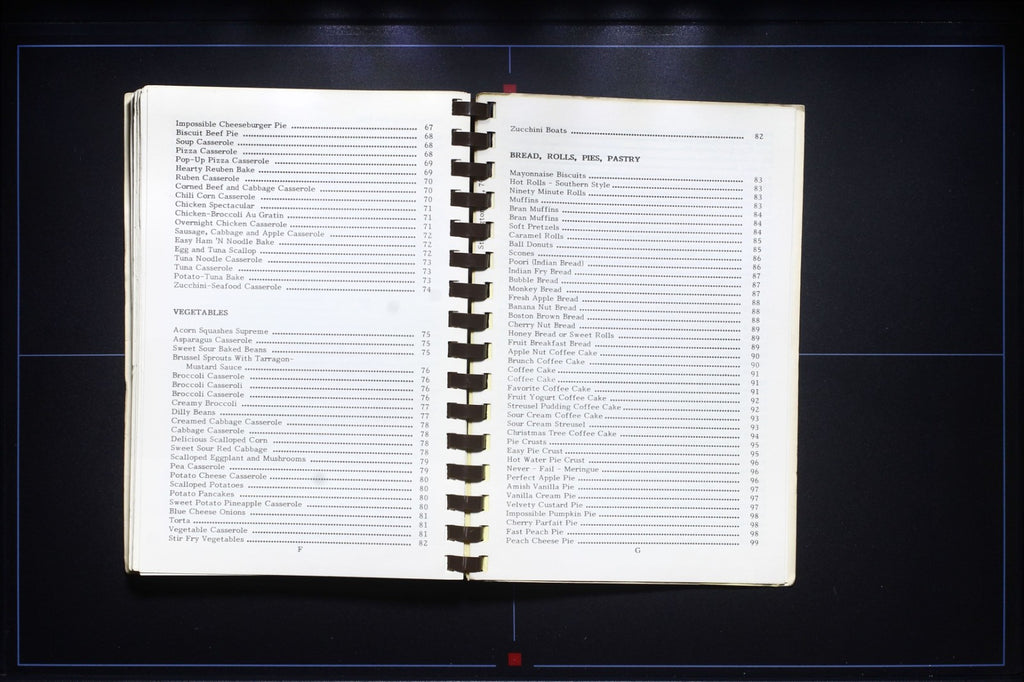 Impossible Cheeseburger Pie 67
Biscuit Beef Pie 68
Soup Casserole 68
Pizza Casserole 68
Pop-Up Pizza Casserole 69
Hearty Reuben Bake 69
Ruben Casserole 70
Corned Beef and Cabbage Casserole 70
Chili Corn Casserole 70
Chicken Spectacular 71
Chicken-Broccoli Au Gratin 71
Overnight Chicken Casserole 71
Sausage, Cabbage and Apple Casserole 72
Easy Ham 'N Noodle Bake 72
Egg and Tuna Scallop 72
Tuna Noodle Casserole 73
Tuna Casserole 73
Potato-Tuna Bake 73
Zucchini-Seafood Casserole 74
VEGETABLES
Acorn Squashes Supreme 75
Asparagus Casserole 75
Sweet Sour Baked Beans 75
Brussel Sprouts With Tarragon-
Mustard Sauce 76
Broccoli Casserole 76
Broccoli Casseroli 76
Broccoli Casserole 76
Creamy Broccoli 77
Dilly Beans 77
Creamed Cabbage Casserole 78
Cabbage Casserole 78
Delicious Scalloped Corn 78
Sweet Sour Red Cabbage 78
Scalloped Eggplant and Mushrooms 79
Pea Casserole 79
Potato Cheese Casserole 80
Scalloped Potatoes 80
Potato Pancakes 80
Sweet Potato Pineapple Casserole 80
Blue Cheese Onions 81
Torta 81
Vegetable Casserole 81
Stir Fry Vegetables 82
F
Zucchini Boats 82
BREAD, ROLLS, PIES, PASTRY
Mayonnaise Biscuits 83
Hot Rolls - Southern Style 83
Ninety Minute Rolls 83
Muffins 83
Bran Muffins 84
Bran Muffins 84
Soft Pretzels 84
Caramel Rolls 85
Ball Donuts 85
Scones 86
Poori (Indian Bread) 86
Indian Fry Bread 87
Bubble Bread 87
Monkey Bread 87
Fresh Apple Bread 88
Banana Nut Bread 88
Boston Brown Bread 88
Cherry Nut Bread 89
Honey Bread or Sweet Rolls 89
Fruit Breakfast Bread 89
Apple Nut Coffee Cake 90
Brunch Coffee Cake 90
Coffee Cake 91
Coffee Cake 91
Favorite Coffee Cake 91
Fruit Yogurt Coffee Cake 92
Streusel Pudding Coffee Cake 92
Sour Cream Coffee Cake 93
Sour Cream Streusel 93
Christmas Tree Coffee Cake 94
Pie Crusts 95
Easy Pie Crust 95
Hot Water Pie Crust 96
Never - Fail - Meringue 96
Perfect Apple Pie 96
Amish Vanilla Pie 97
Vanilla Cream Pie 97
Velvety Custard Pie 97
Impossible Pumpkin Pie 98
Cherry Parfait Pie 98
Fast Peach Pie 98
Peach Cheese Pie 99
G